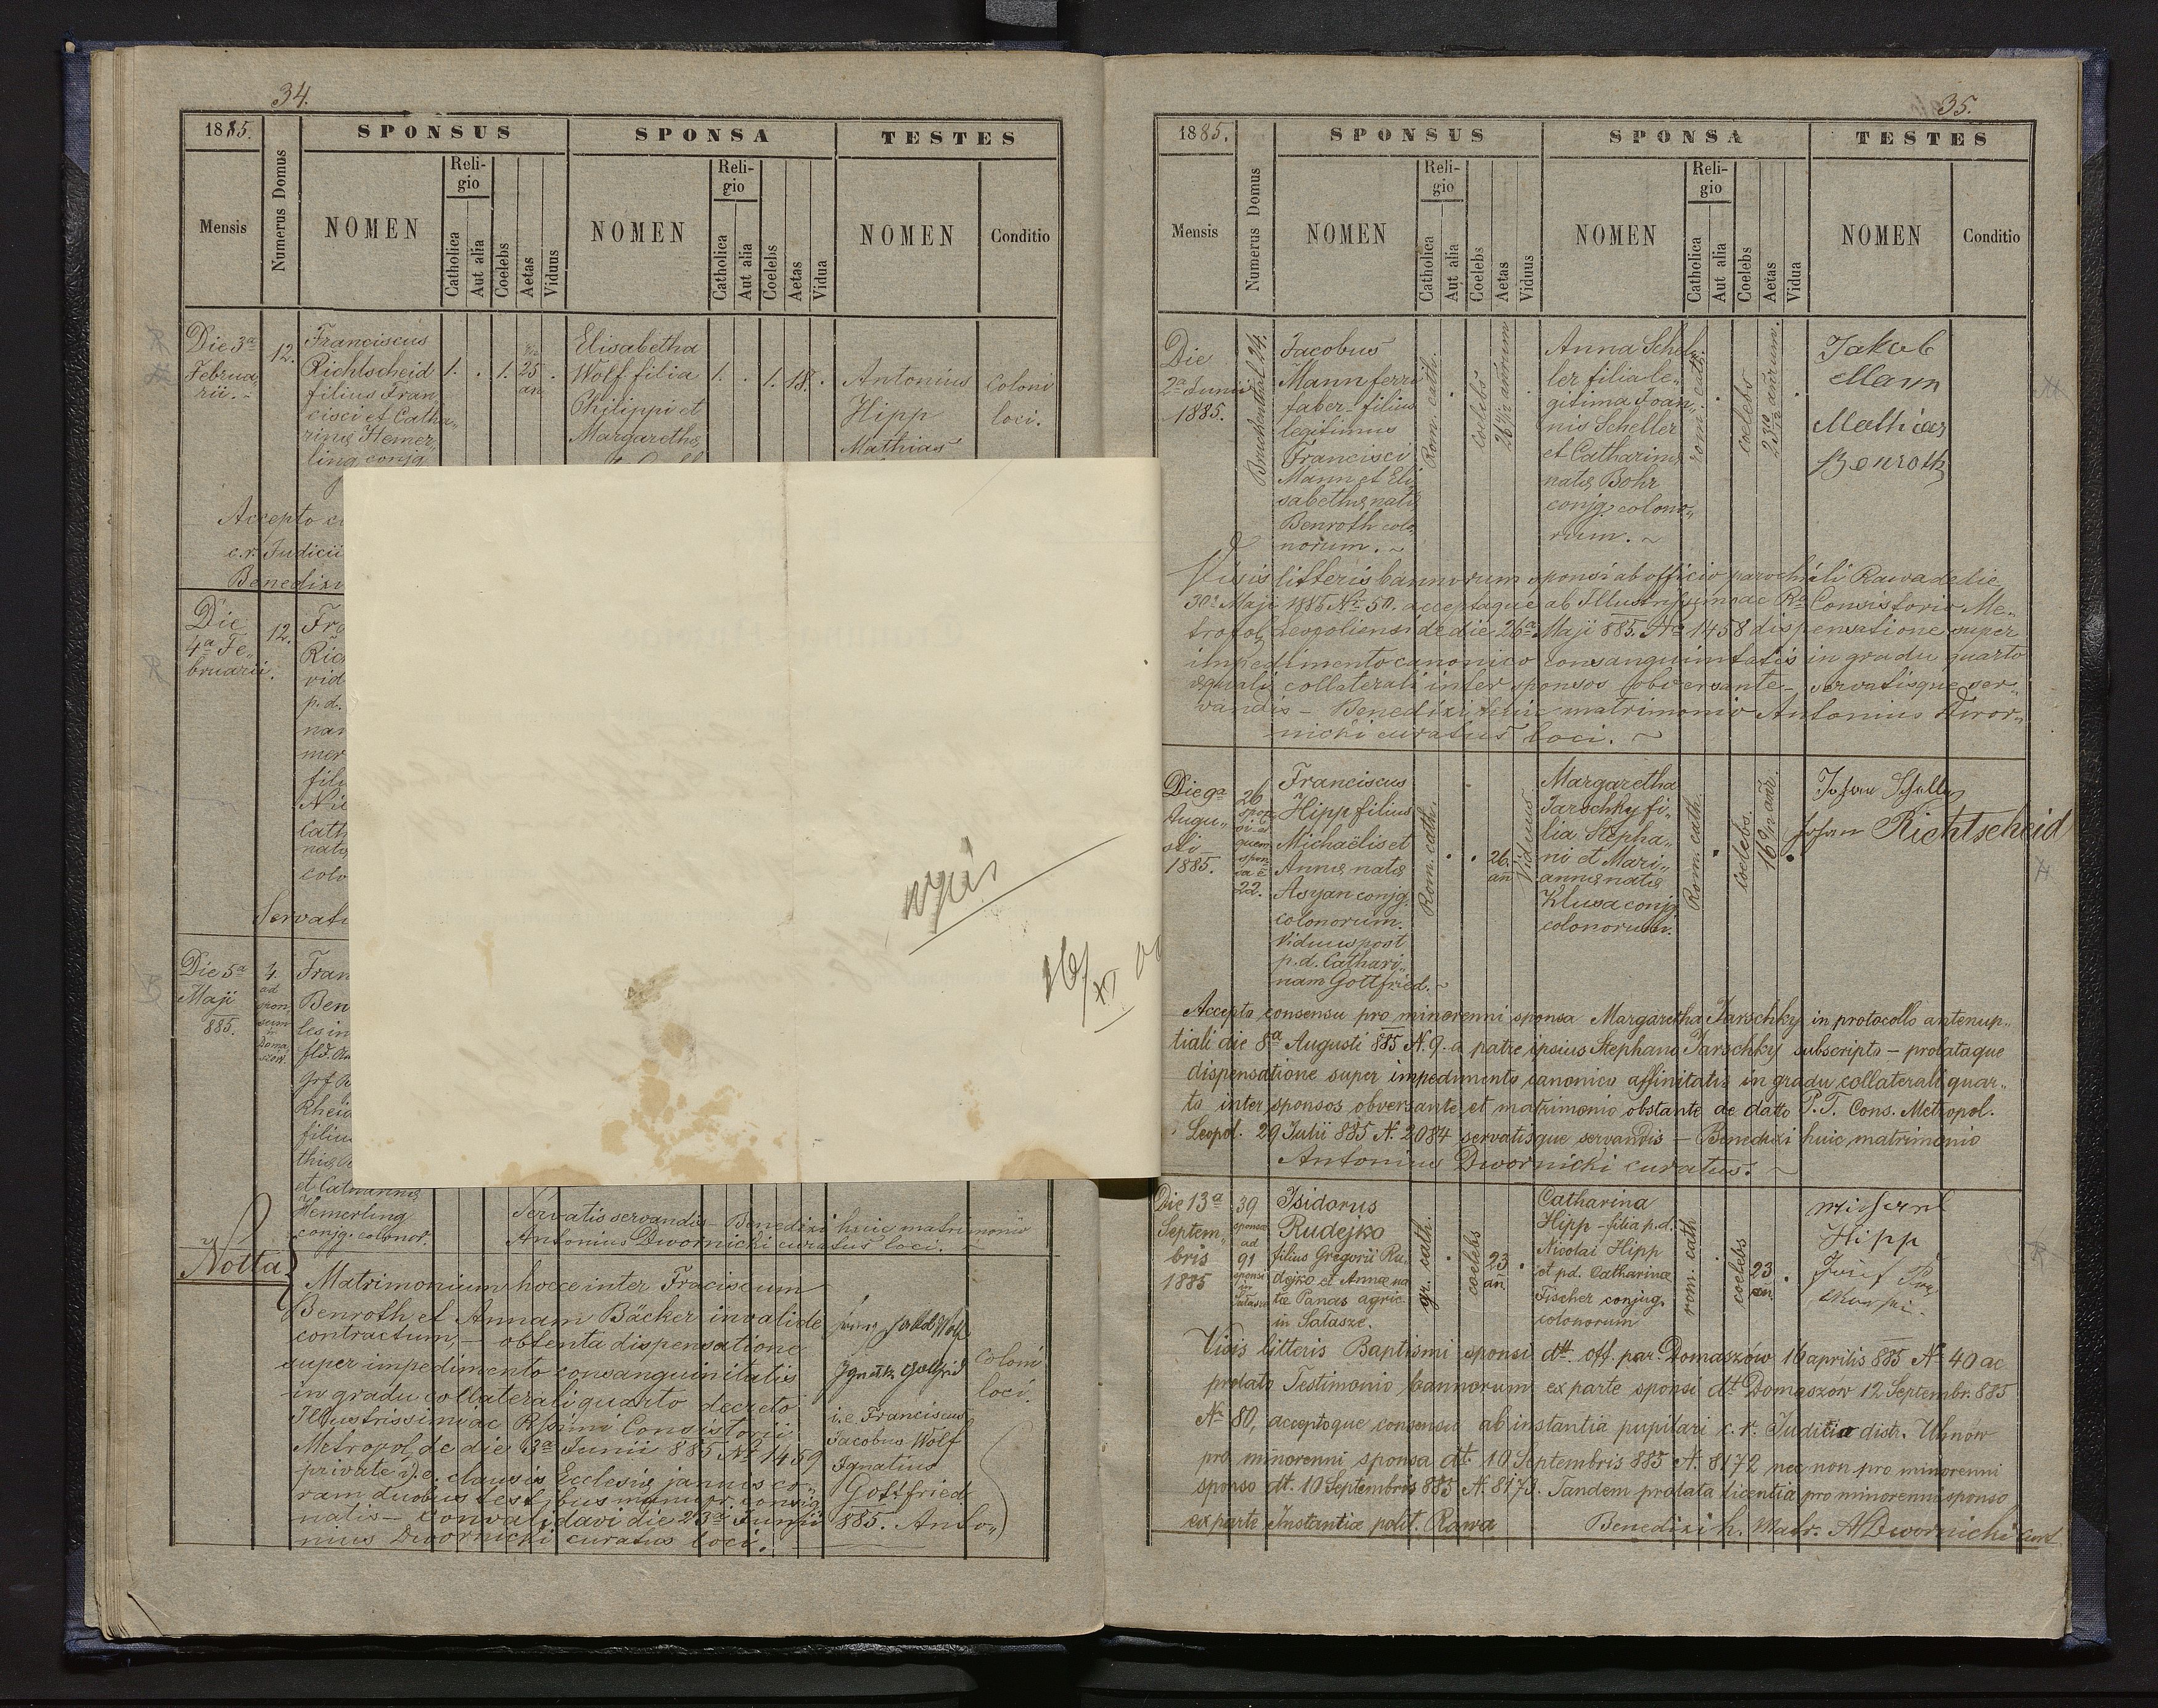 34.
1885.
Numerus Domus
SPONSUS
SPONSA
TESTES
Mensis
NOMEN
Reli-
gio
Catholica
Aut alia
Coelebs
Aetas
Viduus
NOMEN
Reli-
gio
Catholica
Aut alia
Coelebs
Aetas
Vidua
NOMEN
Conditio
Die 3a
Februa
rii.
12.
Franciscus
Richtscheid
filius Fran
cisci et Catha
rinę Hemer
ling conjg
1. . 1. 25 an .
Elisabetha
Wolf filia
Philippi et
Margarethę
1. . 1. 18. .
Antonius
Hipp
Mathias
Coloni
loci.
Accepto
c.r. Judicii
Benedixi
Die
4a Fe
bruarii.
12.
p.d.
Servati
Die 5a
Maji
885.
4.
ad
Doma
szow
et Catharinę
Hemerling
conjg. colonor.
Servatis servandis – Benedixi huic matrimonio
Antonius Dwornicki curatus loci.
Notta
Matrimonium hocce inter Fraciscum
Benroth et Annam Bäcker invalide
contractum, – obtenta dispensatione
super impedimento consanguinitatis
in gradu collaterali quarto decreto
Illustrissimi ac Rssimi Consistorii
Metropol. de die 3a Junii 885 No 1459
private i.e. clausis Ecclesię januis co
ram duobus testibus manupr. consig
natis – convalidavi die 23a Junii 885. Anto
nius Dwornicki curatus loci.
i.e. Franciscus
Jacobus Wolf
Ignatius
Gottfried
Coloni
loci
35.
1885.
Numerus Domus
SPONSUS
SPONSA
TESTES
Mensis
NOMEN
Reli-
gio
Catholica
Aut alia
Coelebs
Aetas
Viduus
NOMEN
Reli-
gio
Catholica
Aut alia
Coelebs
Aetas
Vidua
NOMEN
Conditio
Die
2a Junii
1885.
Bruckenthal 24.
Jacobus
Mann ferri
faber – filius
legitimus
Francisci
Mann et Eli
sabethę natę
Benroth colo
norum. ~
Rom. cath.
coelebs
Anna Schel
ler filia le„
gitima Joan„
nis Scheller
et Catharinę
natę Bohr
conjg. colono„
rum. ~
rom. cath.
coelebs
Jakob
Mann
Mathias
Benroth
Visis litteris bannorum sponsi ab officio parochiali Rawa de die
30a Maji 1885 Nr 50. acceptaque ab Illustrissimo ac Ro Consistorio Me„
tropol. Leopoliensi de die 26a Maji 885. No 1458 dispensatione super
impedimento canonico consanguinitatis in gradu quarto
ęquali collaterali inter sponsos obversante – servatisque ser„
vandis – Benedixi huic matrimonio Antonius Dwor„
nicki curatus loci. ~
Die 9a
Augu„
sti
1885.
26
22.
Franciscus
Hipp filius
Michaëlis et
Annę natę
Asyan conjg.
colonorum.
Viduus post
p.d. Cathari„
nam Gottfried. ~
Rom. cath.
26.
an
Viduus
Margaretha
Jarschky fi„
lia Stepha„
ni et Mari„
annę natę
Klusa conjg
colonorum.
Rom. cath.
coelebs.
Johan Scheller
Johan Richtscheid
Accepto consensu pro minorenni sponsa Margaretha Jarschky in protocollo antenup„
tiali die 8a Augusti 885 N. 9. a patre ipsius Stephano Jarschky subscripto – prolataque
dispensatione super impedimento canonico affinitatis in gradu collaterali quar„
to inter sponsos obversante et matrimonio obstante de datto P.T. Cons. Metropol.
Leopol. 29 Julii 885 N. 2084 servatisque servandis – Benedixi huic matrimonio
Antonius Dwornicki curatus. ~
Die 13a
Septem„
bris
1885
39
sponsæ
ad
91
sponsi
in
Sałasze
Isidorus
Rudejko
filius Gregorii Ru„
dejko et Annæ na
tæ Panas agric.
in Sałasze.
gr. cath.
coelebs
23
an
Catharina
Hipp – filia p.d.
Nicolai Hipp
et pd. Catharinæ
Fischer conjug.
colonorum
rom. cath
coelebs
23
an.
Hipp
Josef
Visis litteris Baptismi sponsi dtt. off. par. Domaszów 16 aprilis 885 No 40 ac
prolato Testimonio bannorum ex parte sponsi dt Domaszów 12 Septembr. 885
No 80, acceptoque consensu ab instantia pupilari c. r. Judicio distr. Uhnów
pro minorenni sponsa dt. 10 Septembris 885 N. 8172 nec non pro minorenni
sponso dt. 10 Septembris 885 N. 8173. Tandem prolata licentia pro minorenni sponso
ex parte Instantiæ polit. Rawa Benedixi h. Matr. ADwornicki